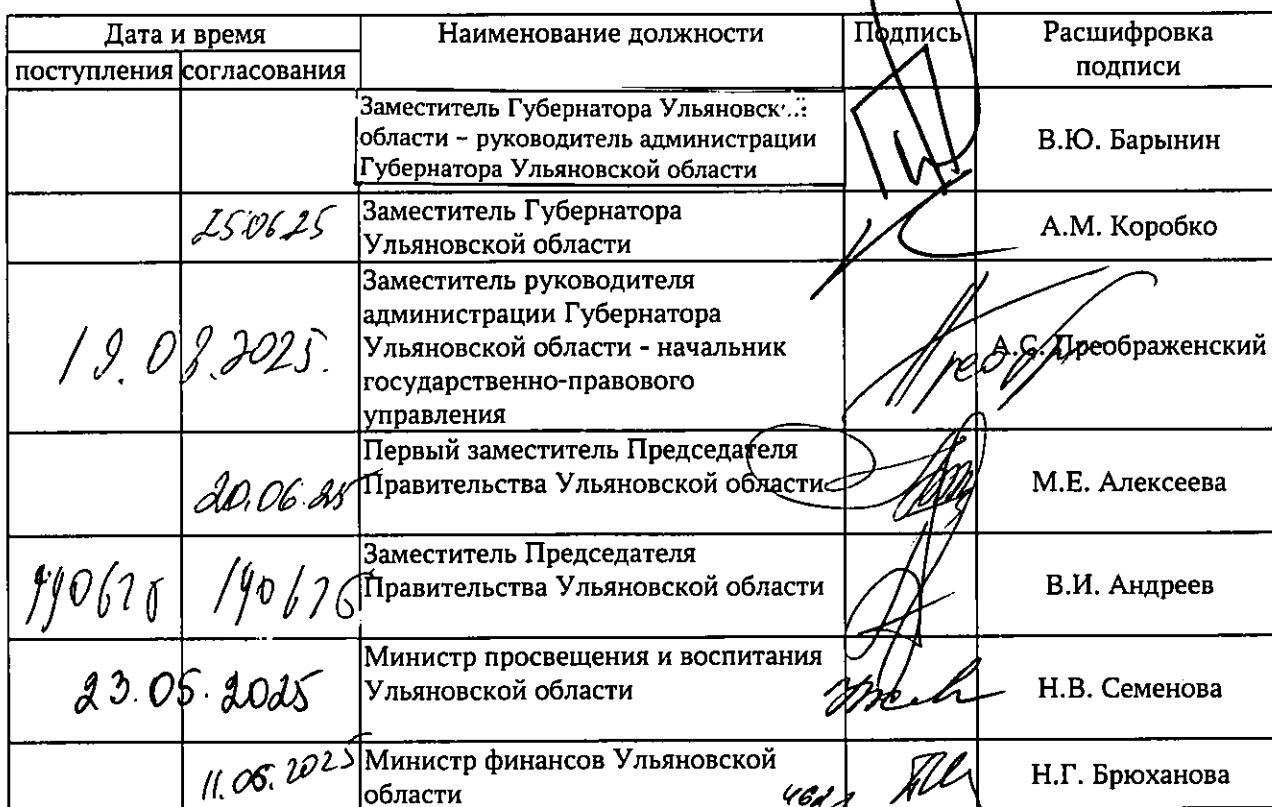 Дата и время Наименование должности Подпись Расшифровка
поступления согласования подписи
Заместитель Губернатора Ульяновск
области – руководитель администрации
Губернатора Ульяновской области
В.Ю. Барынин
25 06 25
Заместитель Губернатора
Ульяновской области
А.М. Коробко
2025.
Заместитель руководителя
администрации Губернатора
Ульяновской области - начальник
государственно-правового
управления
А.С. Преображенский
20.06.25
Первый заместитель Председателя
Правительства Ульяновской области
М.Е. Алексеева
Заместитель Председателя
Правительства Ульяновской области
В.И. Андреев
2025
Министр просвещения и воспитания
Ульяновской области
Н.В. Семенова
2025
Министр финансов Ульяновской
области
Н.Г. Брюханова